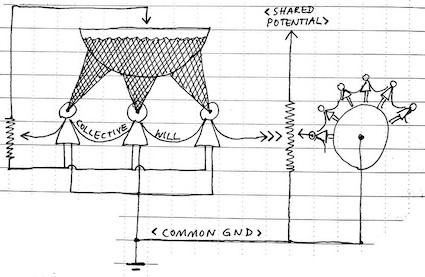 < SHARED
POTENTIAL >
COLLECTIVE WILL
< COMMON GND >